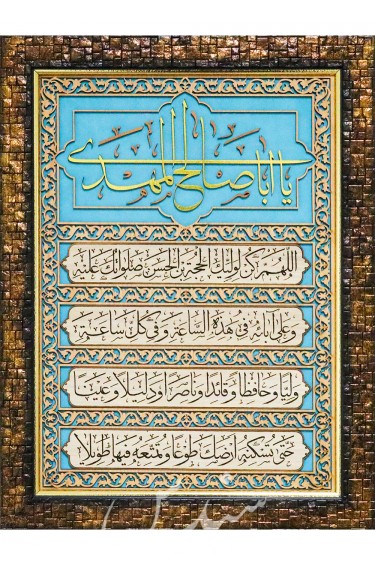 يا ابا صالح المهدي
اللهم كن لوليك الحجة بن الحسن صلواتك عليه
وعلى آبائه في هذه الساعة وفي كل ساعة
وليا وحافظا وقائدا وناصرا ودليلا وعينا
حتى تسكنه أرضك طوعا وتمتعه فيها طويلا